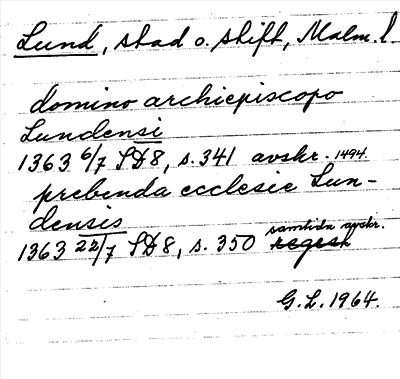 Lund, stad o. stift, Malm. l
domino archiepiscopo
Lundensi
1363 6/7 SD 8, s. 341 avskr. 1494.
prebenda ecclesie Lun-
densis
1363 22/7 SD 8, s. 350 samtida avskr.
G. L. 1964.